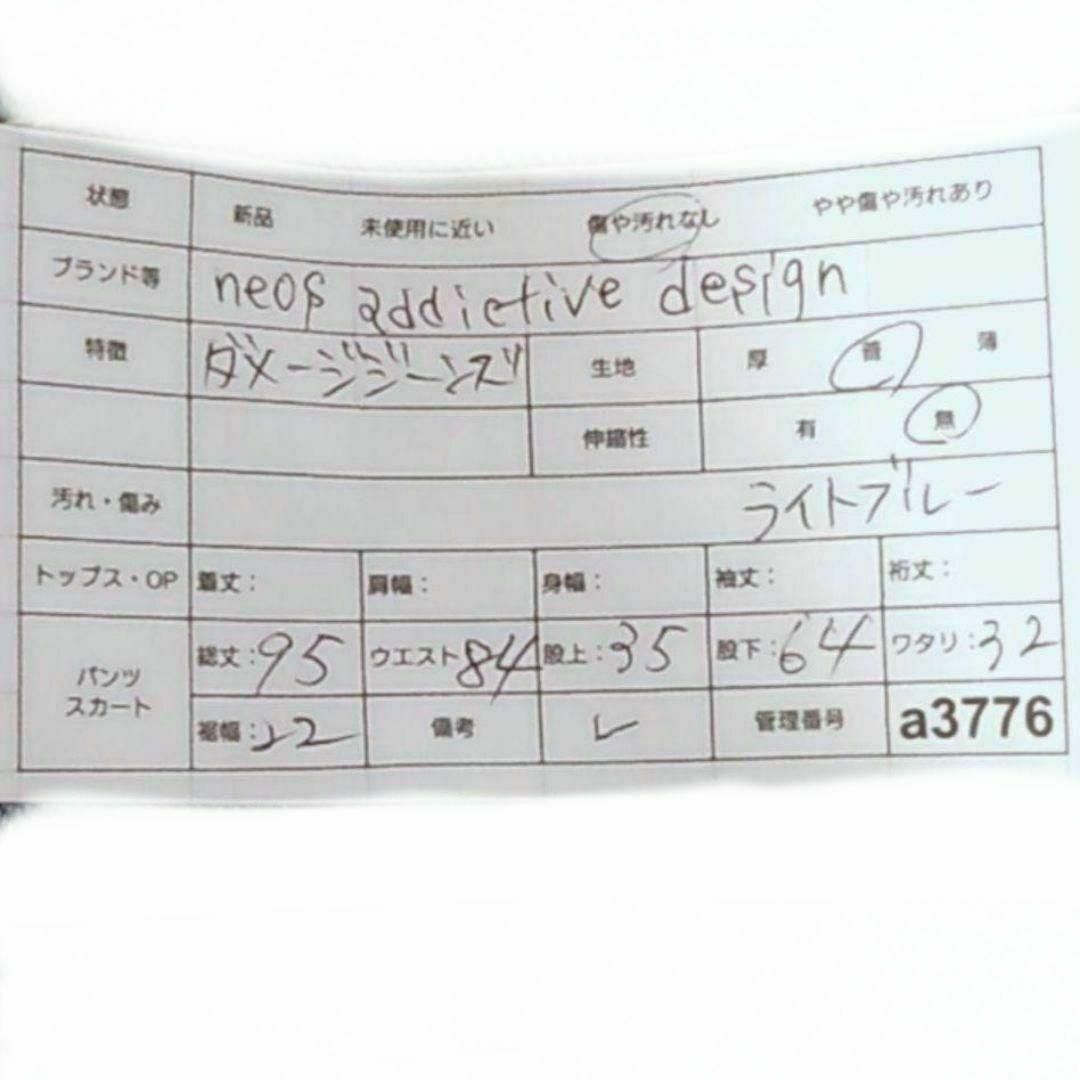 状態 新品 未使用に近い 傷や汚れなし やや傷や汚れあり
ブランド等 neos addictive design
特徴 ダメージジーンズ 生地 厚 普 薄
伸縮性 有 無
汚れ・傷み ライトブルー
トップス・OP 着丈: 肩幅: 身幅: 袖丈: 裄丈:
パンツ スカート 総丈:95 ウエスト84 股上:35 股下:64 ワタリ:32
裾幅:22 備考 L 管理番号 a3776